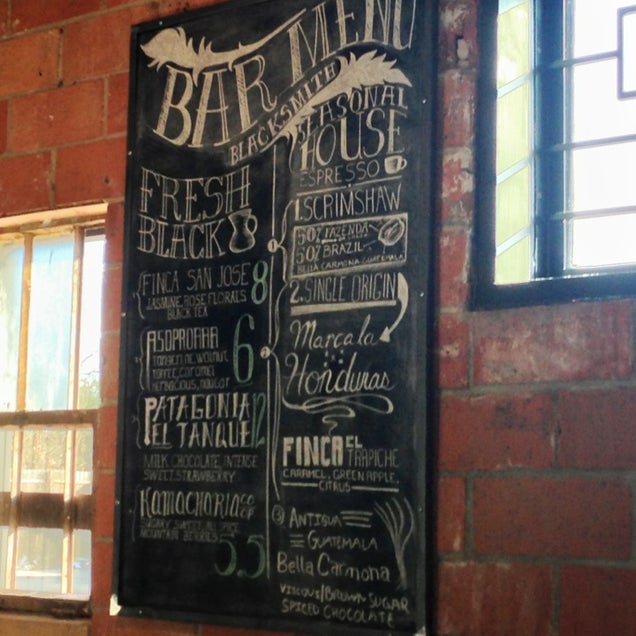 BAR MENU
BLACKSMITH
FRESH
BLACK
FINCA SAN JOSE 8
JASMINE, ROSE, FLORALS
BLACK TEA
ASOPROAHA 6
TOFFEE, CARAMEL
HERBACIOUS, NOUGAT
PATAGONIA
EL TANQUE 12
MILK CHOCOLATE, INTENSE
SWEET, STRAWBERRY
KAMACHARIA CO OP
SUGARY SWEET, ALL SPICE
MOUNTAIN BERRIES 5.5
SEASONAL
HOUSE
ESPRESSO
1. SCRIMSHAW
50% FAZENDA
50% BRAZIL
BELLA CARMONA, GUATEMALA
2. SINGLE ORIGIN
1
Marcala
2
Honduras
FINCA EL
TRAPICHE
CARAMEL, GREEN APPLE,
CITRUS
3 ANTIGUA
GUATEMALA
Bella Carmona
VISCOUS/BROWN SUGAR
SPICED CHOCOLATE